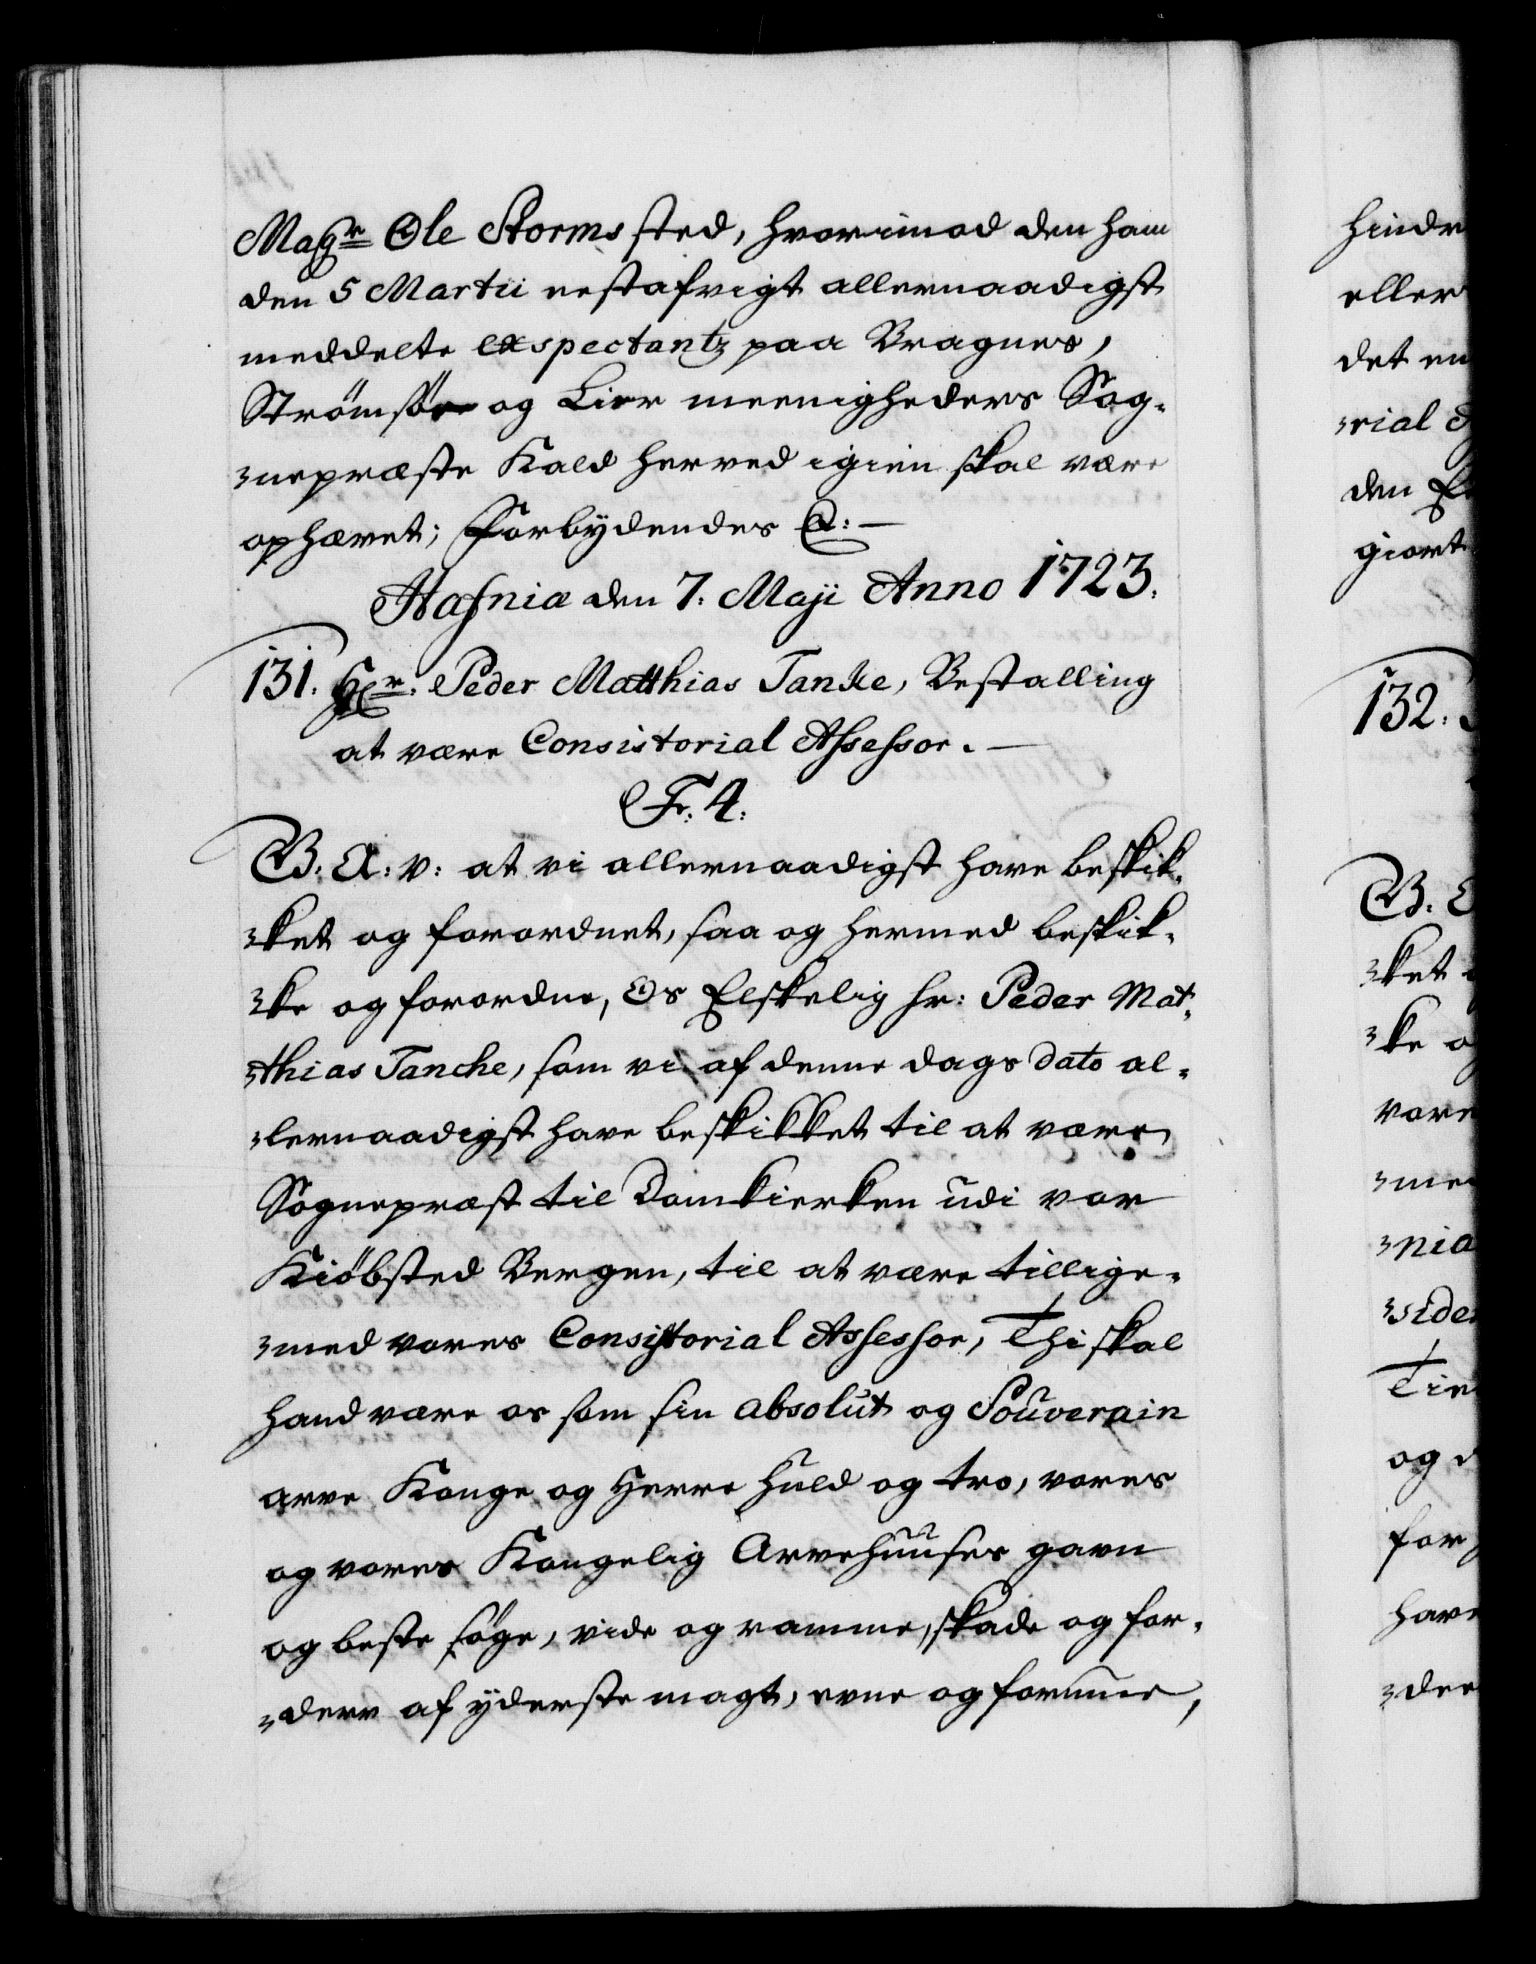 Magr Ole Storms sted, hvorimod den ham
den 5 Martii nestafvigt allernaadigst
meddelte exspectantz paa Bragnes,
Strømsöe og Lier meenigheders Sog-
nepræste Kald herved igien skal være
ophævet; Forbydendes &:
Hafniæ den 7. Maji Anno 1723.
131. Hr. Peder Matthias Tanke, Bestalling
at være Consistorial Assessor.
Fr. 4.
G. A: v: at vi allernaadigst have beskik-
ket og forordnet, saa og hermed beskik-
ke og forordne, Os Elskelig hr: Peder Mat-
thias Tanche, som vi af denne dags dato al-
lernaadigst have beskikket til at være
Sognepræst til Domkierken udi vor
Kiöbsted Bergen, til at være tillige-
med vores Consistorial Assessor, Thi skal
hand være os som sin absolut og Souverain
arve Konge og Herre huld og tro, vores
og vores Kongelig Arvehuuses gavn
og beste söge, vide og ramme, skade og for-
derv af yderste magt, evne og formue,
hindr
eller
det en
rial
den
giort
132.
ket
ke o
vore
me
nia
side
Tie
og
for
have
der